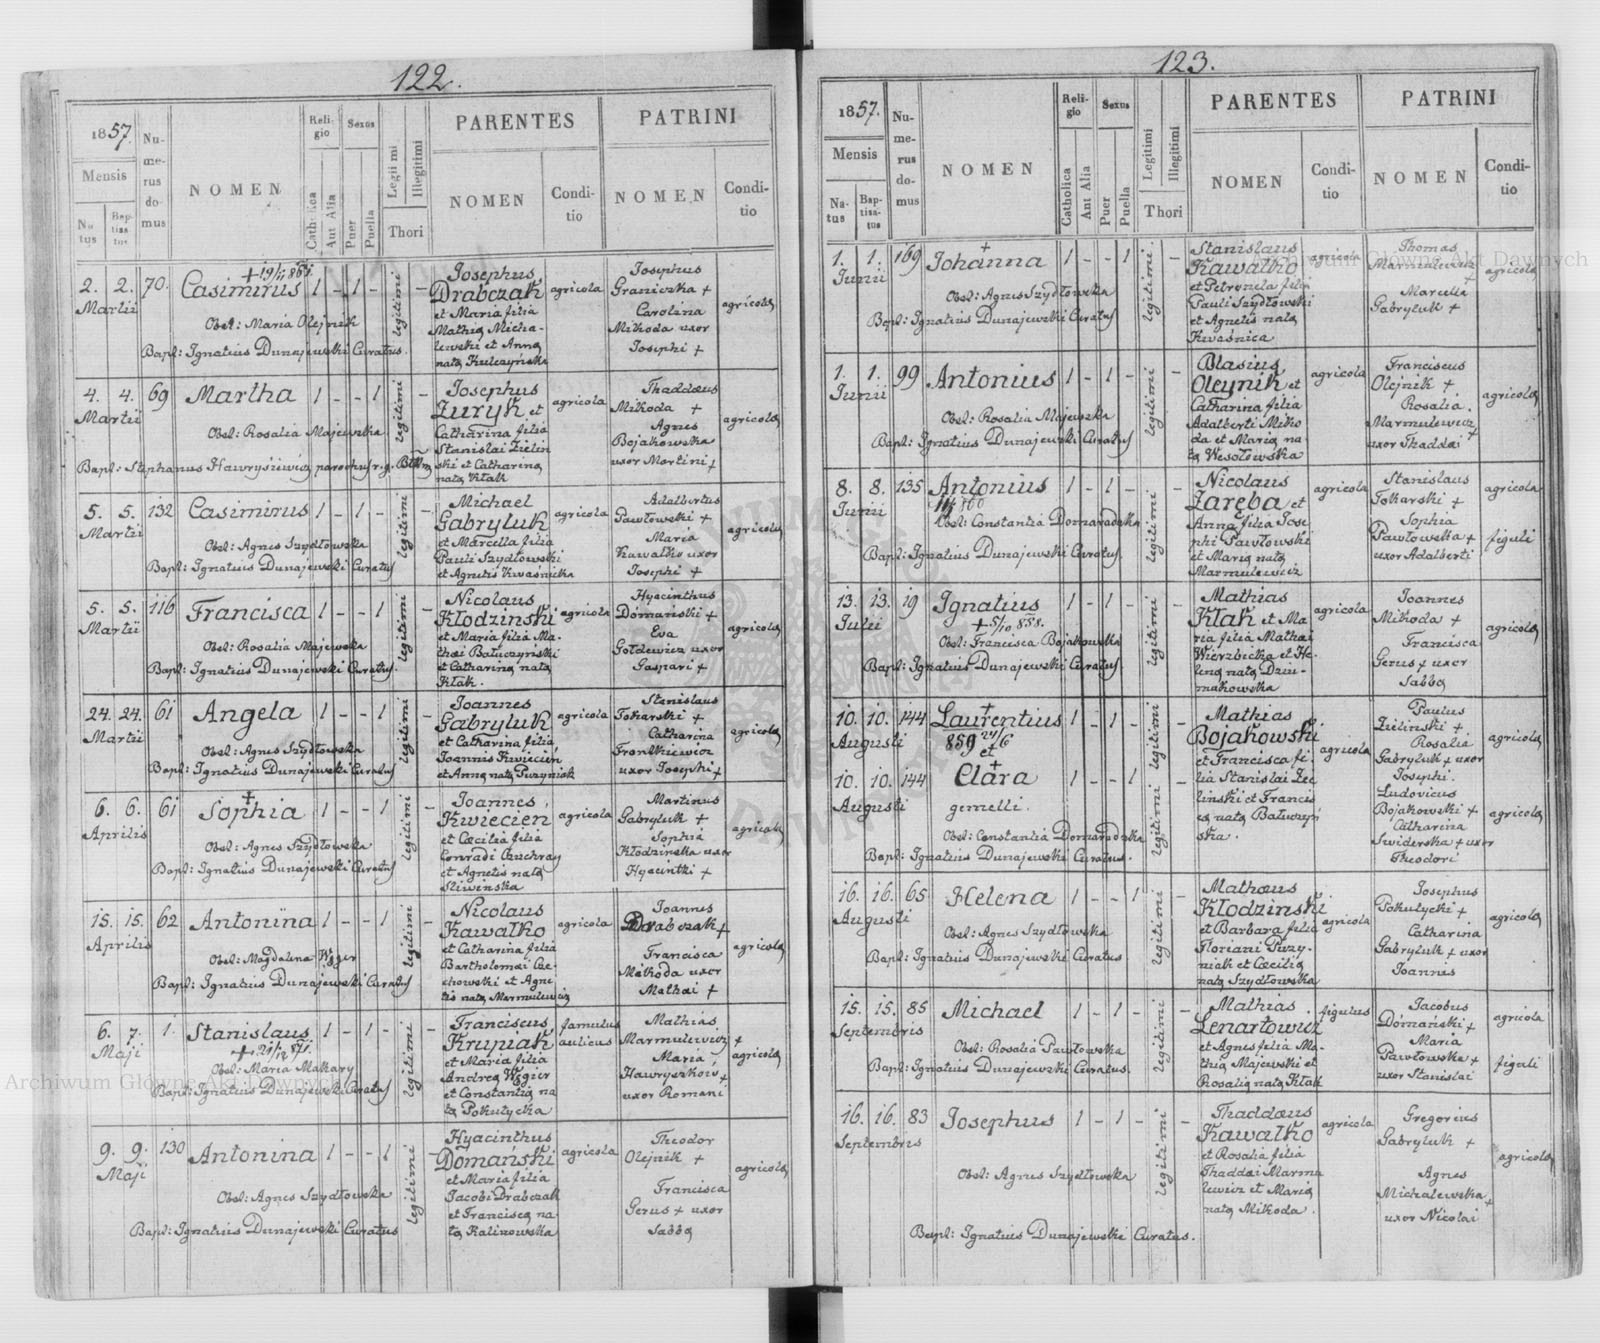 122.
1857.
Mensis
Na
tus
Bap-
tisa
tus
Nu-
me-
rus
do-
mus
NOMEN
Reli-
gio
Catholica
Aut Alia
Sexus
Puer
Puella
Legitimi
Illegitimi
Thori
PARENTES
NOMEN
Condi-
tio
PATRINI
NOMEN
Condi-
tio
2. 2. 70. Casimirus 1 - 1 - legitimi -
Martii
Obst: Maria Olejnik
Bapt: Ignatius Dunajewski Curatus.
Josephus
Drabczak
et Maria filia
Mathię Micha-
lewski et Anna
nata Kulczyńska
agricola
Josephus
Graniczka +
Carolina
Mikoda uxor
Josephi +
agricolę
4. 4. 69 Martha 1 - - 1 legitimi -
Martii
Obst: Rosalia Majewska
Bapt: Stephanus Hawrysiewicz parochus r. g.
Josephus
Zuryk et
Catharina filia
Stanislai Zielin
ski et Catharina
nata Kłak
agricola
Thaddæus
Mikoda +
Agnes
Bojakowska
uxor Martini +
agricolę
5. 5. 132 Casimirus 1 - 1 - legitimi -
Martii
Obst: Agnes Szydłowska
Bapt: Ignatius Dunajewski Curatus
Michael
Gabryluk
et Marcella filia
Pauli Szydłowski
et Agnetis Kwaśnicka
agricola
Adalbertus
Pawłowski +
Maria
Kawałko uxor
Josephi +
agricolę
5. 5. 116 Francisca 1 - - 1 legitimi -
Martii
Obst: Rosalia Majewska
Bapt: Ignatius Dunajewski Curatus.
Nicolaus
Kłodzinski
et Maria filia Ma-
thæi Bałuczyński
et Catharina nata
Kłak.
agricola
Hyacinthus
Domański +
Eva
Gołdewicz uxor
Gaspari +
agricolę
24. 24. 61 Angela 1 - - 1 legitimi -
Martii
Obst: Agnes Szydłowska
Bapt: Ignatius Dunajewski Curatus
Joannes
Gabryluk
et Catharina filia
Joannis Kwiecien
et Anna nata Puzyniak
agricola
Stanislaus
Tokarski +
Catharina
Frontkiewicz
uxor Josephi +
agricolę
6. 6. 61 Sophia 1 - - 1 legitimi -
Aprilis
Obst: Agnes Szydłowska
Bapt: Ignatius Dunajewski Curatus
Joannes
Kwiecien
et Cæcilia filia
Conradi Czuchray
et Agnetis nata
Sliwinska
agricola
Martinus
Gabryluk +
Sophia
Kłodzinska uxor
Hyacinthi +
agricolę
15. 15. 62 Antonina 1 - - 1 legitimi -
Aprilis
Obst: Magdalena Węgier
Bapt: Ignatius Dunajewski Curatus
Nicolaus
Kawałko
et Catharina filia
Bartholomæi Cze-
chowski et Agne
tis nata Marmulewicz
agricola
Joannes
Drabczak +
Francisca
Mikoda uxor
Mathæi +
agricolę
6. 7. 1. Stanislaus 1 - 1 - legitimi -
Maji
Obst: Maria Makary
Bapt: Ignatius Dunajewski Curatus
Franciscus
Krupiak
et Maria filia
Andreę Węgier
et Constantia na
ta Pokutycka
famulus
aulicus
Mathias
Marmulewicz +
Maria
Hawryszkow +
uxor Romani
agricolę
9. 9. 130 Antonina 1 - - 1 legitimi -
Maji
Obst: Agnes Szydłowska
Bapt: Ignatius Dunajewski Curatus
Hyacinthus
Domański
et Maria filia
Jacobi Drabczak
et Francisca na-
ta Kalinowska
agricola
Theodor
Olejnik +
Francisca
Gerus + uxor
Sabbę
agricolę
123.
1857.
Mensis
Na-
tus
Bap-
tisa-
tus
Nu-
me-
rus
do-
mus
NOMEN
Reli-
gio
Catholica
Aut Alia
Sexus
Puer
Puella
Legitimi
Illegitimi
Thori
PARENTES
NOMEN
Condi-
tio
PATRINI
NOMEN
Condi-
tio
1. 1. 169 Johanna 1 - - 1 legitimi. -
Junii
Obst: Agnes Szydłowska
Bapt: Ignatius Dunajewski Curatus
Stanislaus
Kawałko
et Petronela filia
Pauli Szydłowski
et Agnetis nata
Kwaśnica
agricola
Thomas
Marmulewicz +
Marcella
Gabryluk +
agricolę
1. 1. 99 Antonius 1 - 1 - legitimi -
Junii
Obst: Rosalia Majewska
Bapt: Ignatius Dunajewski Curatus
Blasius
Oleynik et
Catharina filia
Adalberti Miko
da et Maria na-
ta Wesołowska
agricola
Franciscus
Olejnik +
Rosalia.
Marmulewicz +
uxor Thaddæi
agricolę
8. 8. 135 Antonius 1 - 1 - legitimi -
Junii
Obst: Constantia Domaradzka
Bapt: Ignatius Dunajewski Curatus.
Nicolaus
Zaręba et
Anna filia Jose
phi Pawłowski
et Maria nata
Marmulewicz
agricola
Stanislaus
Tokarski +
Sophia
Pawłowska +
uxor Adalberti
agricola
figuli
13. 13. 19 Ignatius 1 - 1 - legitimi -
Julii
+ 5/10 858.
Obst: Francisca Bojakowska
Bapt: Ignatius Dunajewski Curatus
Mathias
Kłak et Ma
ria filia Mathæi
Wierzbicka et He-
lena nata Dziu-
makowska
agricola
Joannes
Mikoda +
Francisca
Gerus + uxor
Sabbę
agricolę
10. 10. 144 Laurentius 1 - 1 - legitimi -
Augusti
859 24/6
et
10. 10. 144 Clara 1 - - 1 legitimi -
Augusti
gemelli.
Obst: Constantia Domaradzka
Bapt: Ignatius Dunajewski Curatus.
Mathias
Bojakowski
et Francisca fi-
lia Stanislai Zie
linski et Francis
ca nata Bałuczyń
ska.
agricola
Paulus
Zielinski +
Rosalia
Gabryluk + uxor
Josephi.
Ludovicus
Bojakowski +
Catharina
Swiderska + uxor
Theodori
agricolę
agricolę
16. 16. 65 Helena 1 - - 1 legitimi -
Augusti
Obst: Agnes Szydłowska
Bapt: Ignatius Dunajewski Curatus
Mathæus
Kłodzinski
et Barbara filia
Floriani Puzy-
niak et Cæcilia
nata Szydłowska
agricola
Josephus
Pokutycki +
Catharina
Gabryluk + uxor
Joannis
agricolę
15. 15. 85 Michael 1 - 1 - legitimi -
Septembris
Obst: Rosalia Pawłowska
Bapt: Ignatius Dunajewski Curatus.
Mathias
Lenartowicz
et Agnes filia Ma-
thię Majewski et
Rosalia nata Kłak
figulus
Jacobus
Domański +
Maria
Pawłowska +
uxor Stanislai
agricola
figuli
16. 16. 83 Josephus 1 - 1 - legitimi -
Septembris
Obst: Agnes Szydłowska
Bapt: Ignatius Dunajewski Curatus.
Thaddæus
Kawałko
et Rosalia filia
Thaddæi Marmu
lewicz et Maria
nata Mikoda.
agricola
Gregorius
Gabryluk +
Agnes
Michalewska +
uxor Nicolai
agricolę
Archiwum Główne Akt Dawnych
Archiwum Główne Akt Dawnych